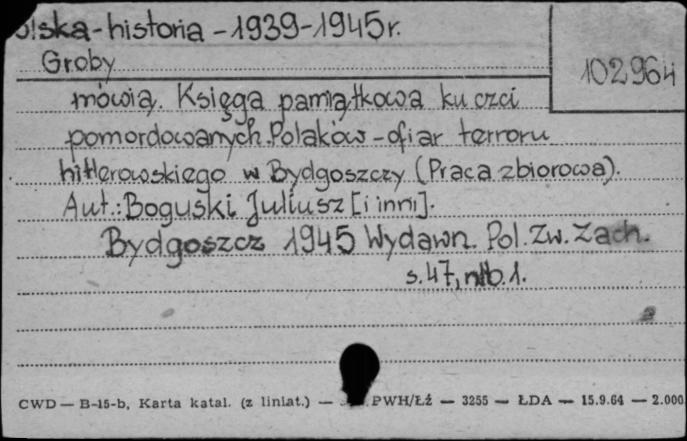 olska-historia - 1939-1945r.
Groby
102964
mówią. Księga pamiątkowa ku czci
pomordowanych Polaków - ofiar terroru
hitlerowskiego w Bydgoszczy (Praca zbiorowa).
Aut.: Boguski Juliusz [i inni].
Bydgoszcz 1945 Wydawn. Pol. Zw. Zach.
s.47, nlb.1.
CWD — B-15-b, Karta katal. (z liniat.) — PWH/Łź — 3255 — ŁDA — 15.9.64 — 2.000